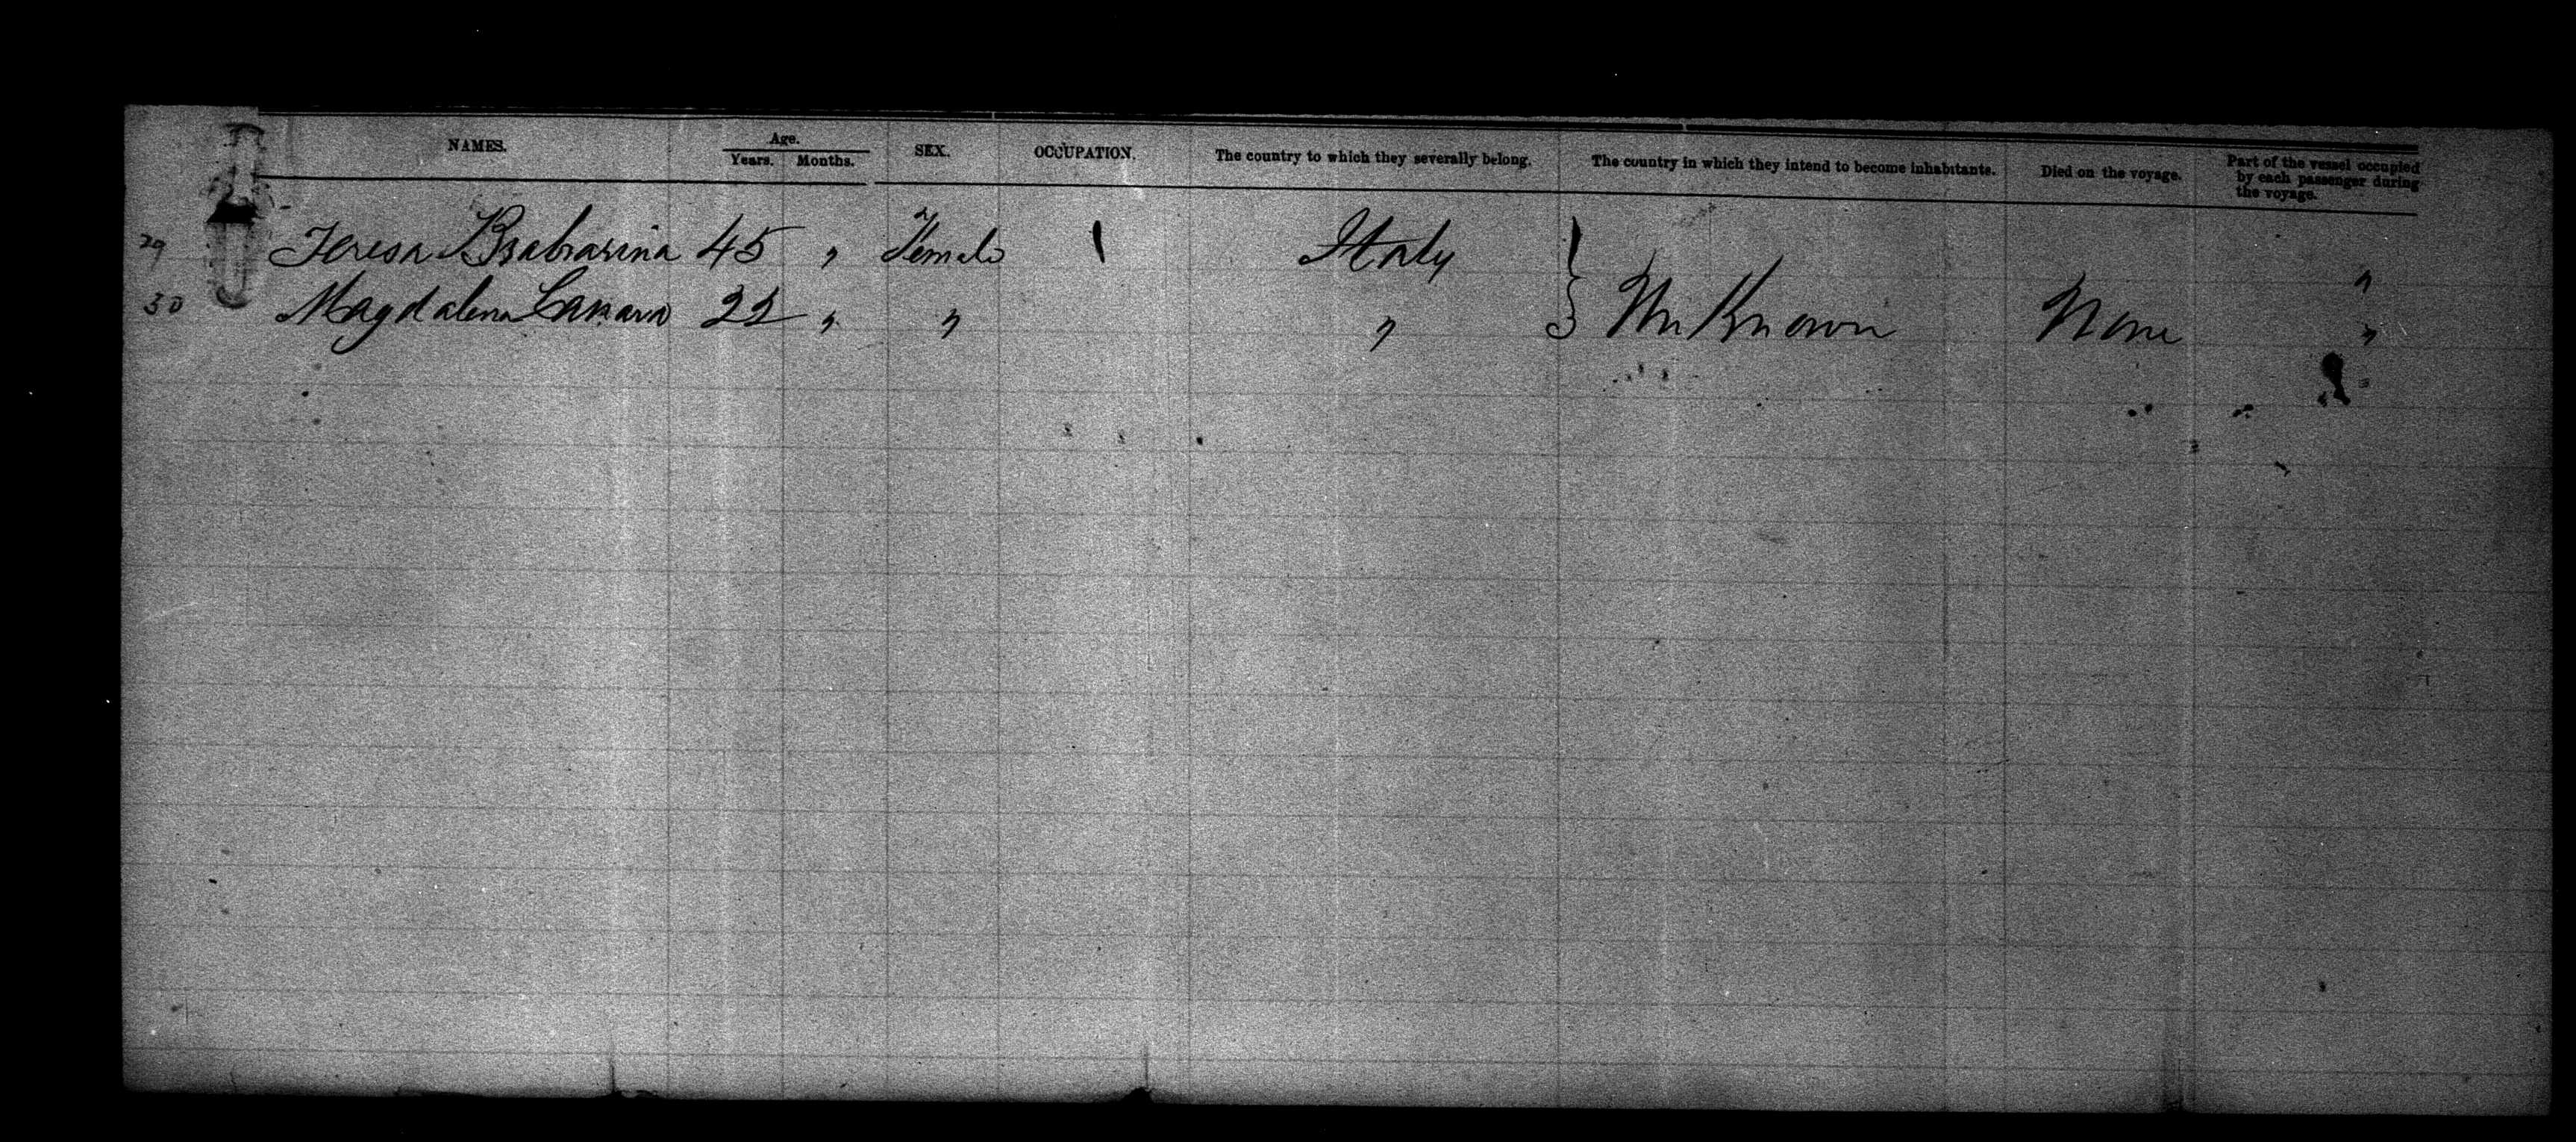 NAMES. Age. SEX. OCCUPATION. The country to which they severally belong. The country in which they intend to become inhabitants. Died on the voyage. Part of the vessel occupied by each passenger during the voyage.
Years. Months.
29 Teresa 45 " Female Italy "
30 Magdalena 22 " " " } UnKnown None "